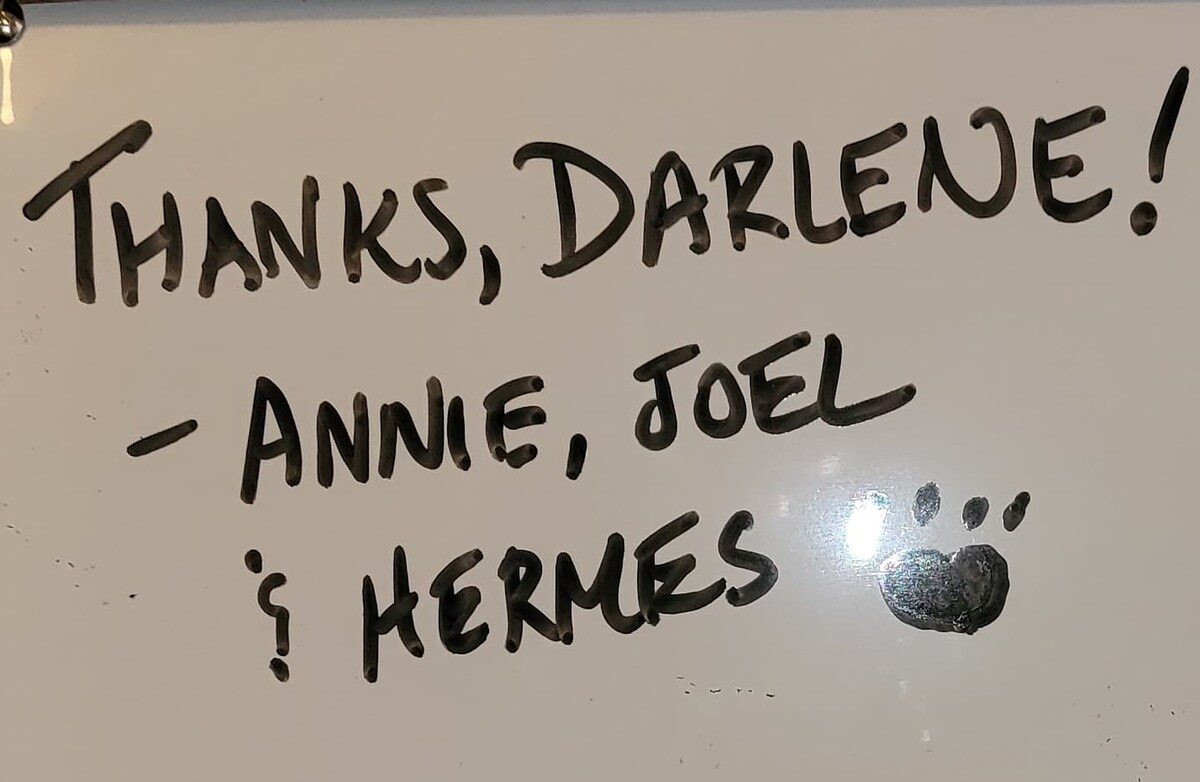 THANKS, DARLENE!
- ANNIE, JOEL
& HERMES